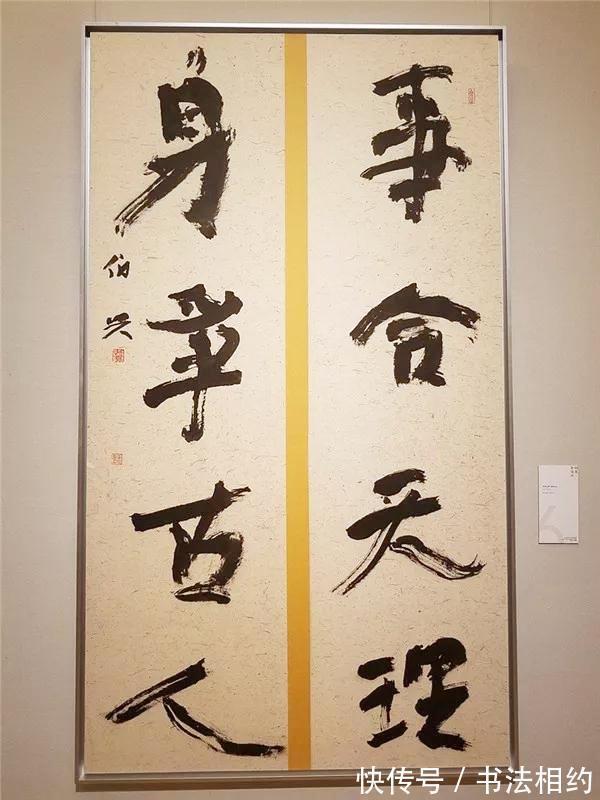 事合天理
身率古人
伯
快传号 / 书法相约